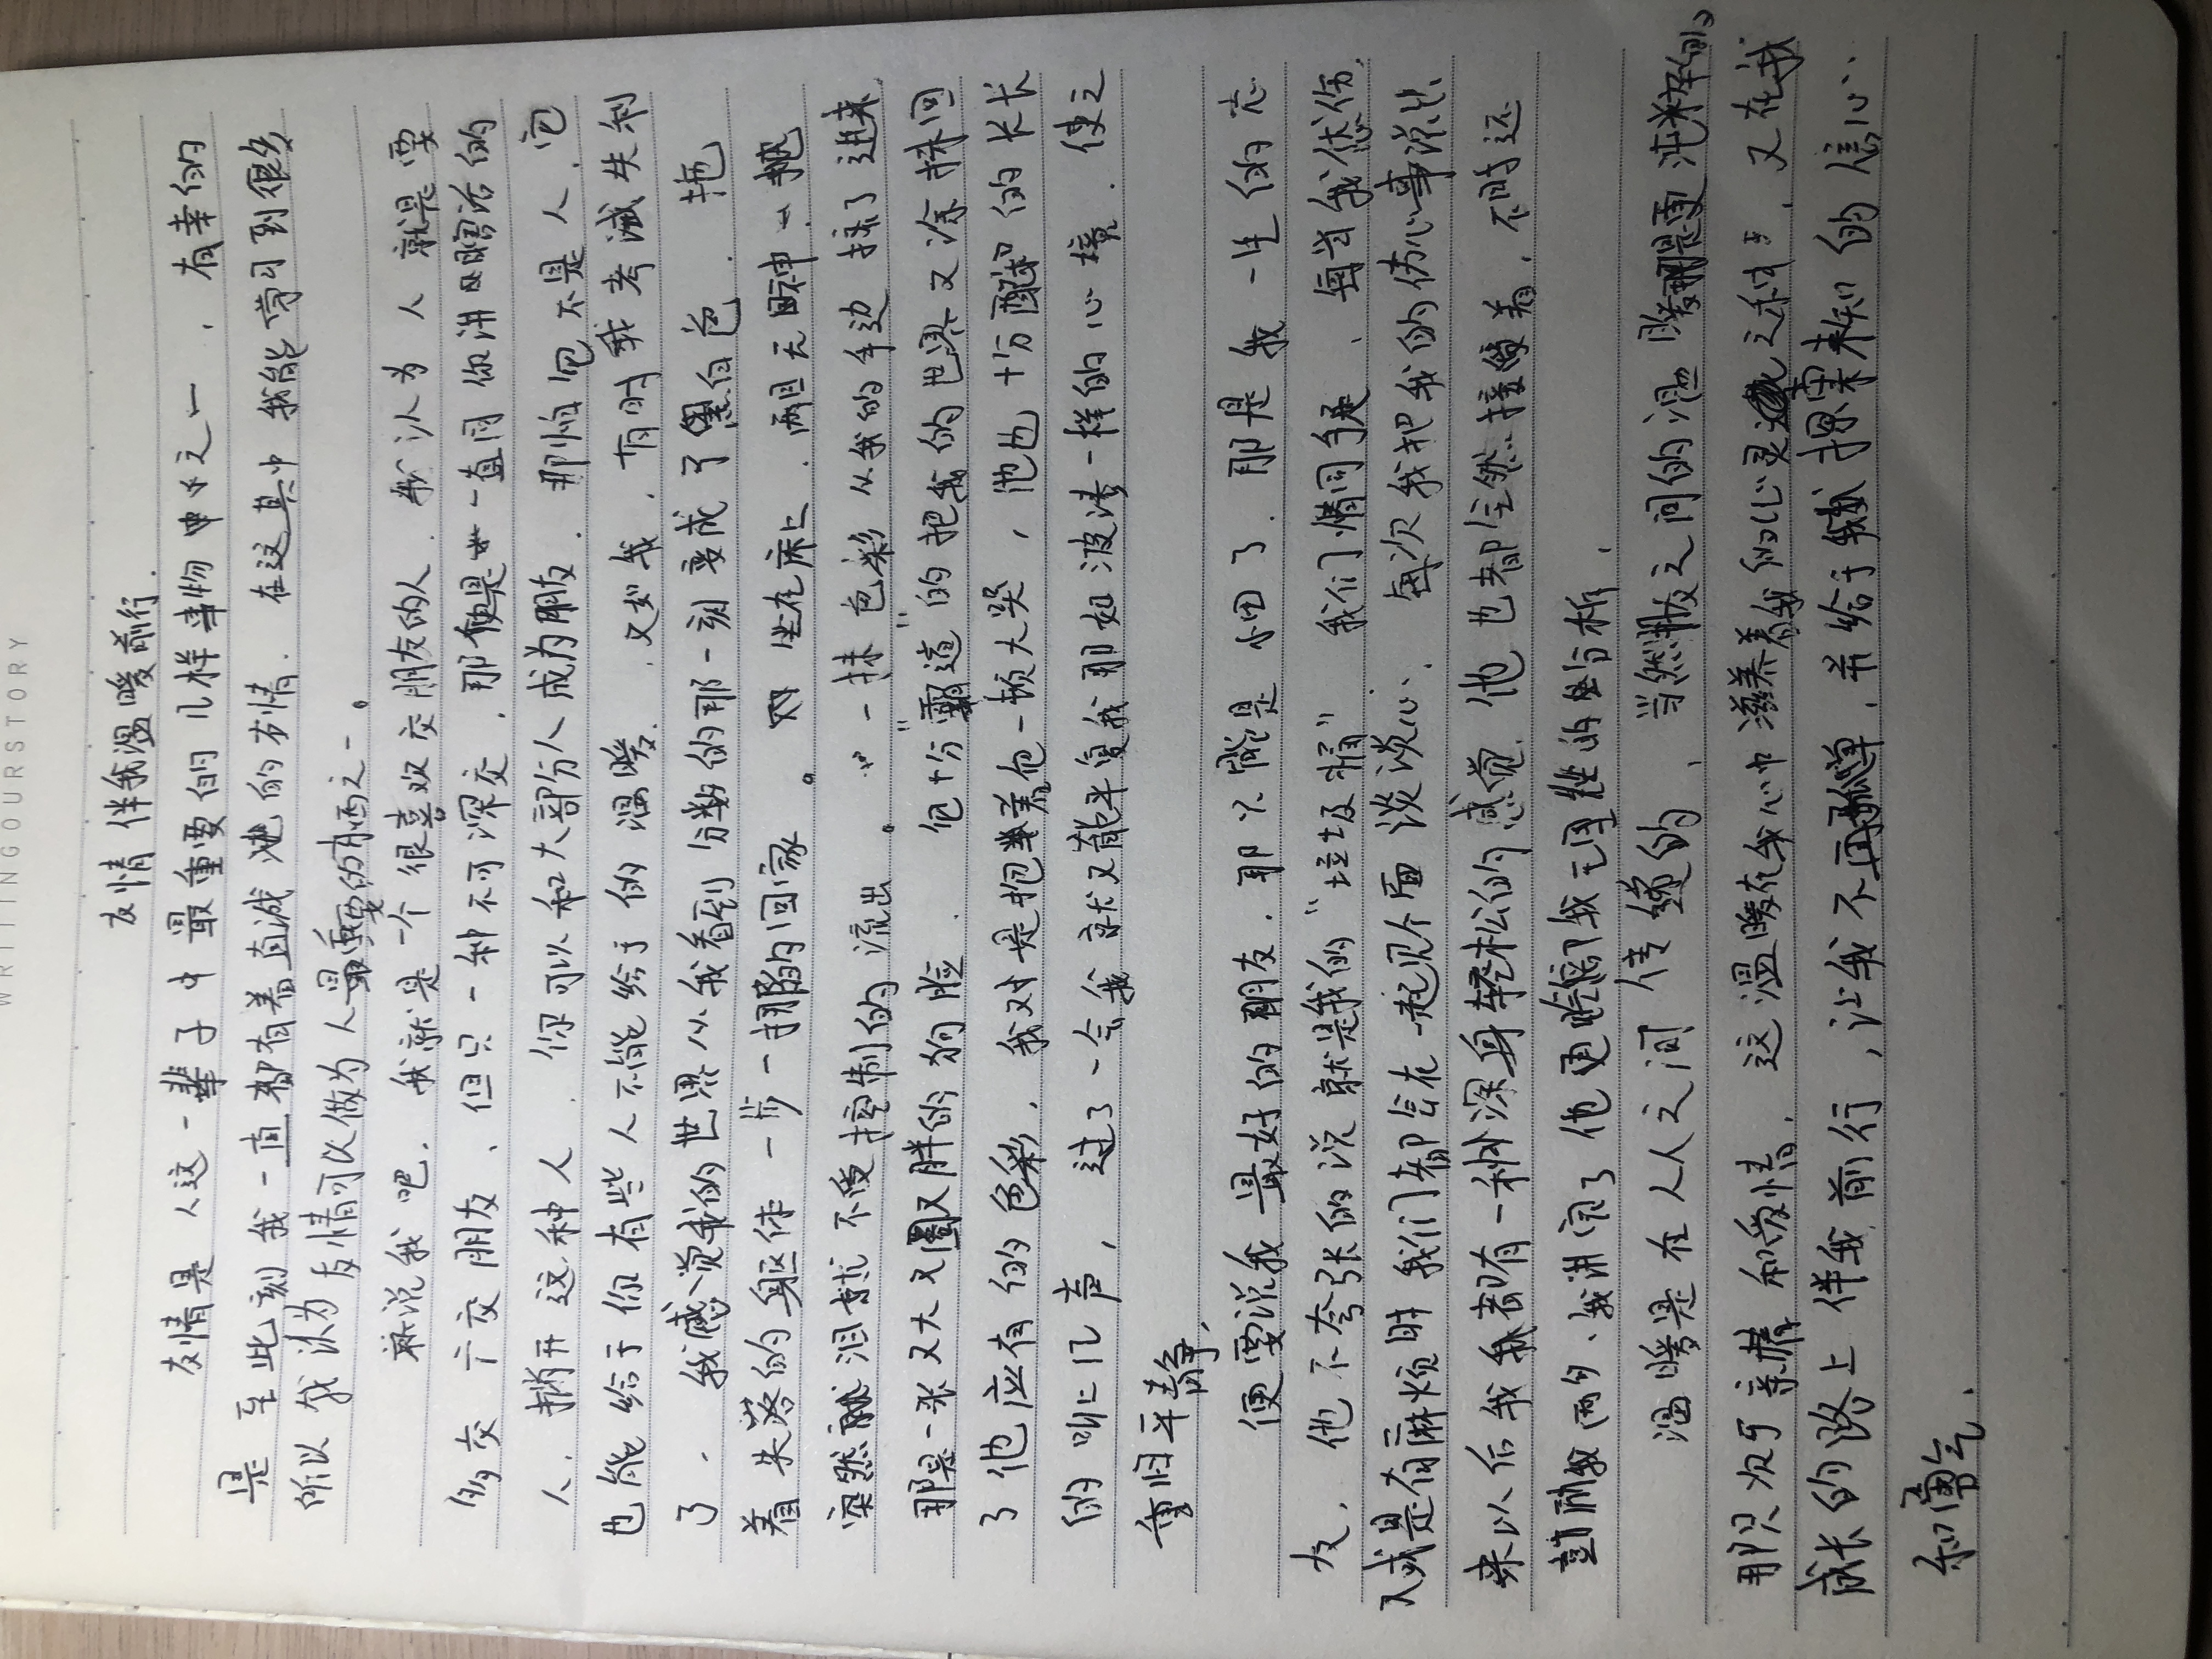 WRITINGOURSTORY
友情伴我温暖前行.
友情是人这一辈子中最重要的几样事物中之一，有幸的
是至此刻我一直都有着真诚的友情.在这其中我能学习到很多
所以我认为友情可以做为人最重要的东西之一。
就说我吧，我就是一个很喜欢交朋友的人.我认为人就是要
多交广交朋友，但只一种不可深交，那便是一直同你讲瞎话的
人，捎开这种人，你可以和大部分人成为朋友，那怕它不是人，它
也能给于你有些人不能给于的温暖.又如我，有时我考试失利
了，我感觉我的世界从我看到分数的那一刻变成了黑白色，拖
着失落的身躯体一步一挪的回家。坐在床上，两目无神
突然泪就不受控制的流出。一抹色彩从我的手边抹了进来
那是一张又大又圆又胖的狗脸，他十分"霸道"的把我的世界又涂抹回
了他应有的色彩，我对是抱着他一顿大哭，他也十分配和的长长
的叫上几声，过了一会我就又能平复我那如波涛一样的心境，使之
重归平静，
便要说我最好的朋友，那必然是小田了，那是我一生的志
友，他不夸张的说就是我的"垃圾桶"我们情同手足，每当我忧伤，
又或是有麻烦时我们都会在一起见个面谈谈心，每次我把我的伤心事说出
来以后我都有一种浑身轻松的感觉，他也都全然接受着，不时还
鼓励我两句、我讲完了他更会给我无国界的分析，
温暖是在人人之间传递的，当然朋友之间的温暖是更纯粹的，
那只次于亲情和爱情，这温暖在我心中滋养着我的心灵之种子，又在我
成长的路上伴我前行，让我不再孤单，并给于我探索未知的信心
和勇气.